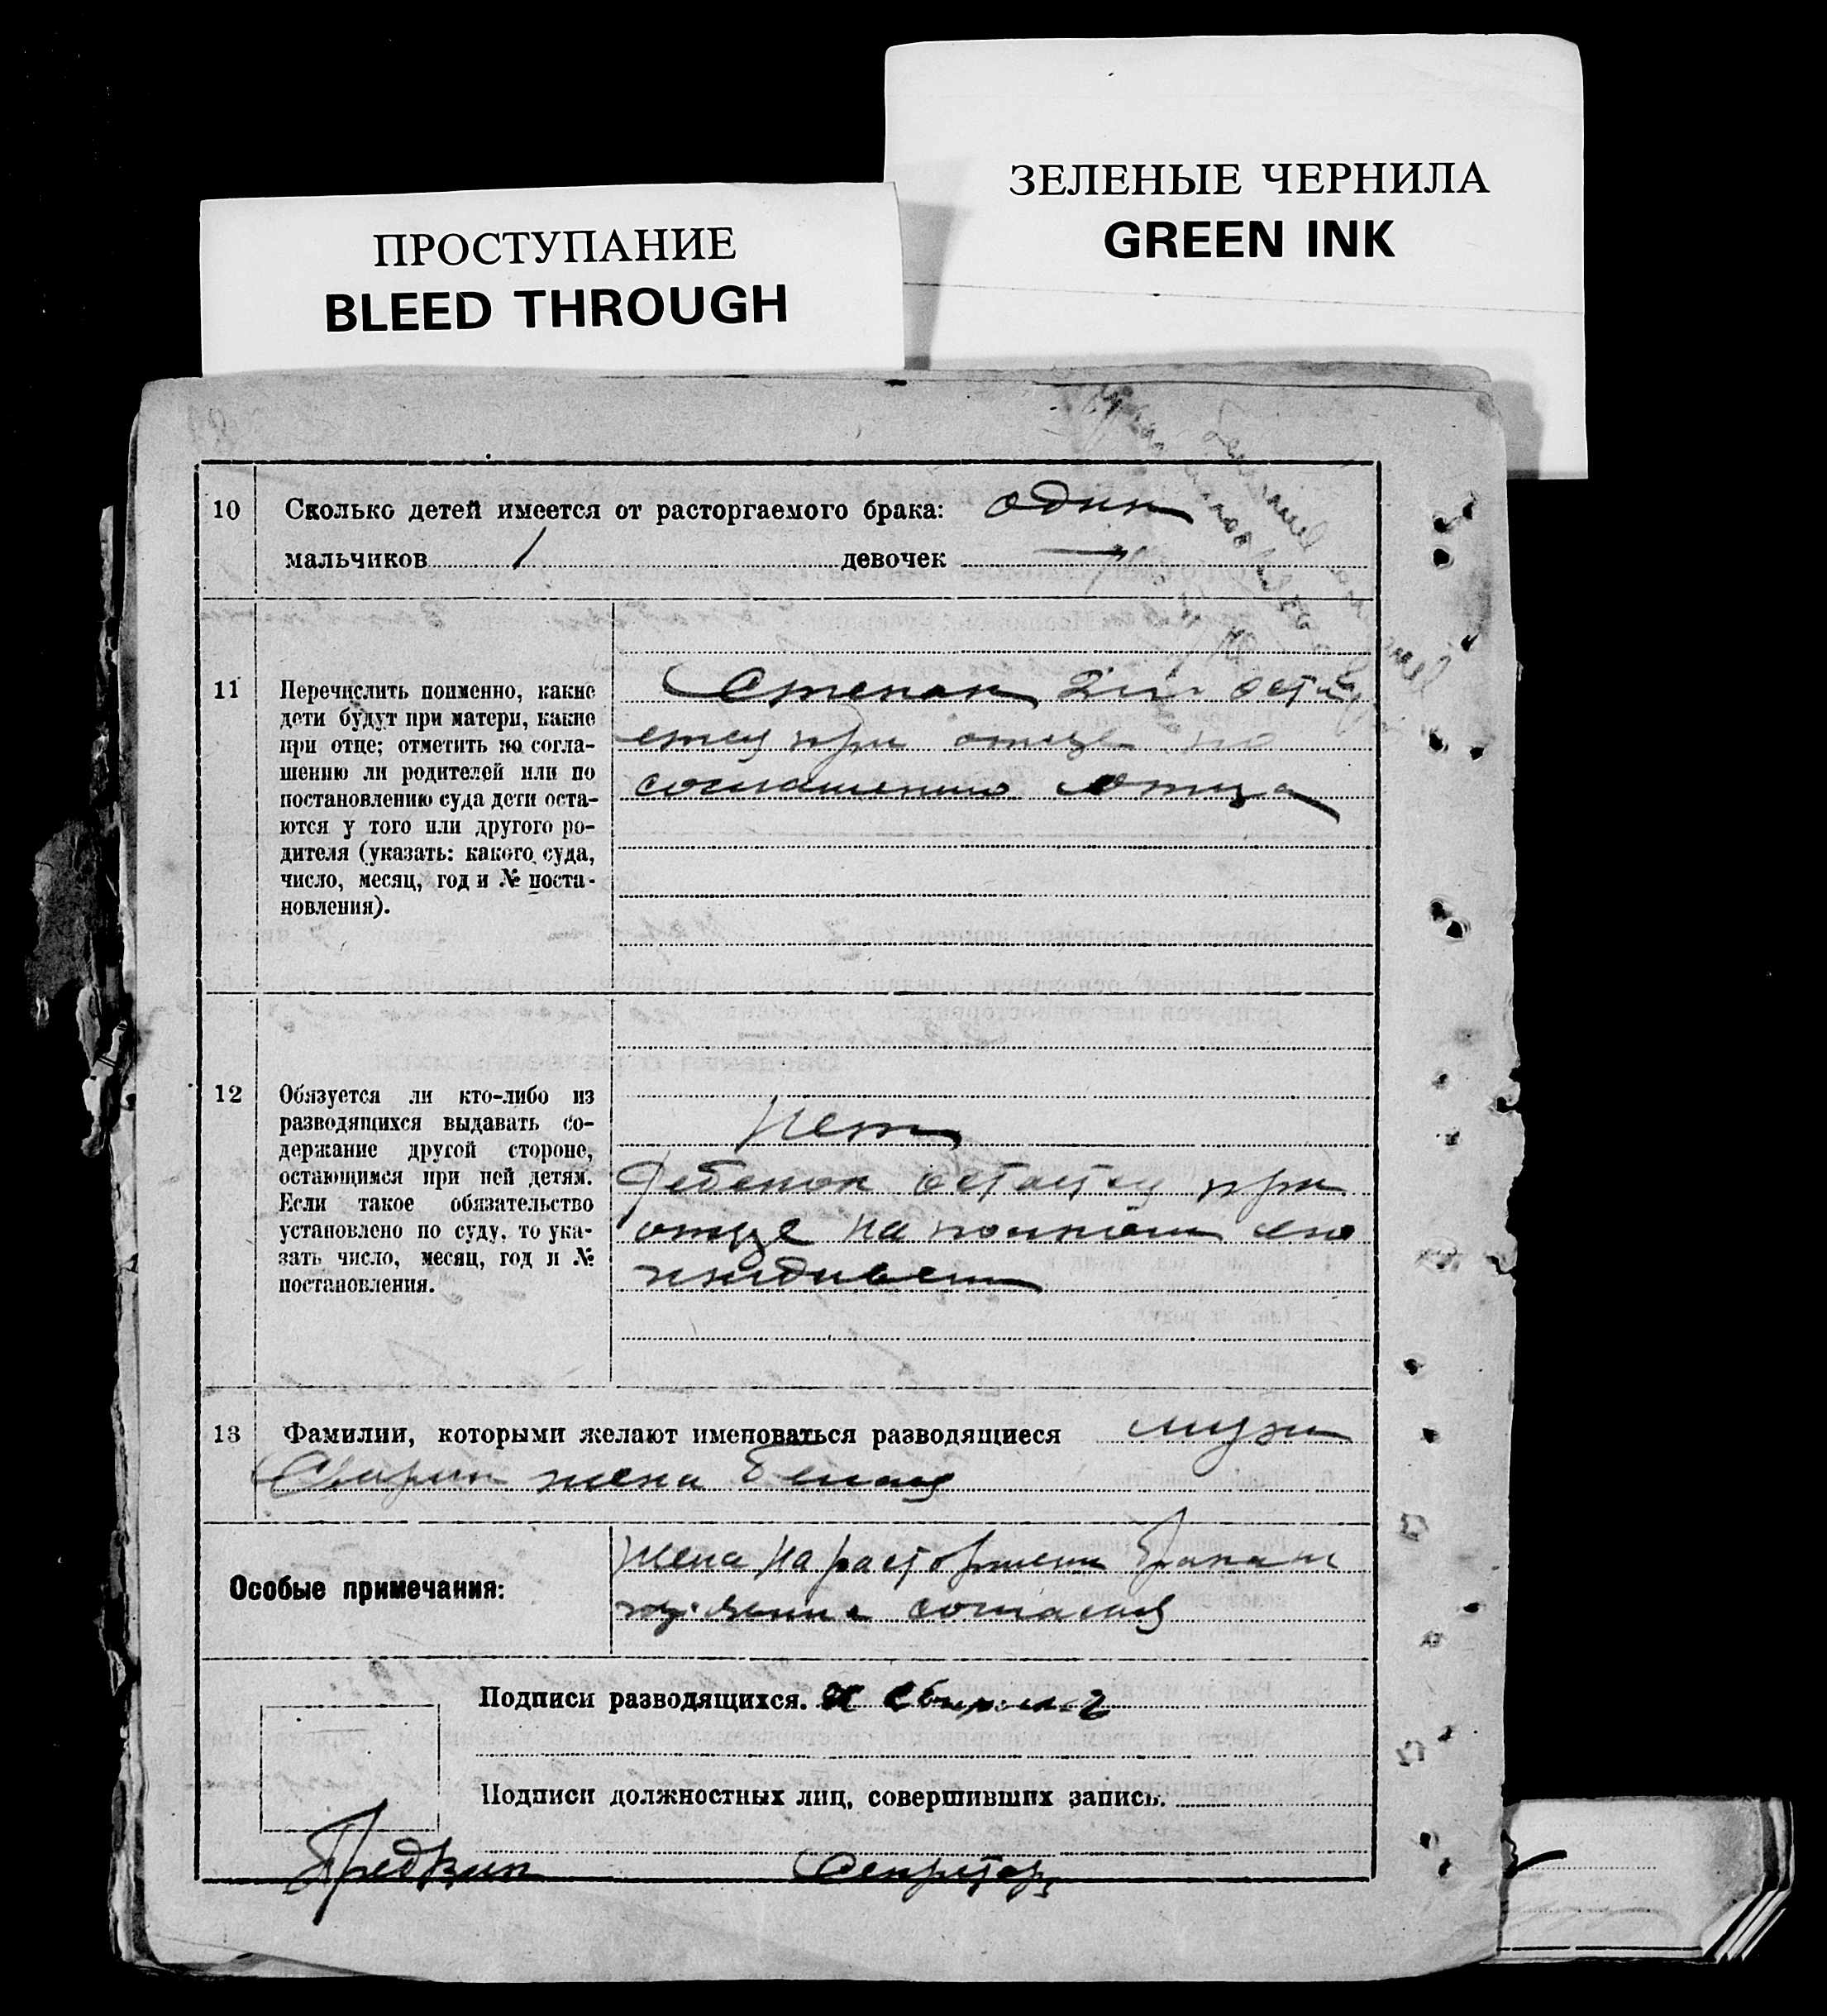 ЗЕЛЕНЫЕ ЧЕРНИЛА
GREEN INK
ПРОСТУПАНИЕ
BLEED THROUGH
10 Сколько детей имеется от расторгаемого брака: один
мальчиков 1 девочек —
11 Перечислить поименно, какие
дети будут при матери, какие
при отце; отметить по согла-
шению ли родителей или по
постановлению суда дети оста-
ются у того или другого ро-
дителя (указать: какого суда,
число, месяц, год и № поста-
новления).
Степан
при отце по
соглашению отца
12 Обязуется ли кто-либо из
разводящихся выдавать со-
держание другой стороне,
остающимся при ней детям.
Если такое обязательство
установлено по суду, то ука-
зать число, месяц, год и №
постановления.
Нет
Ребенок остается при
отце на полном его
иждивении
13 Фамилии, которыми желают именоваться разводящиеся муж
жена
Особые примечания:
жена на расторжени брака
согласна
Подписи разводящихся.
Подписи должностных лиц, совершивших запись.
Предзик Секретар